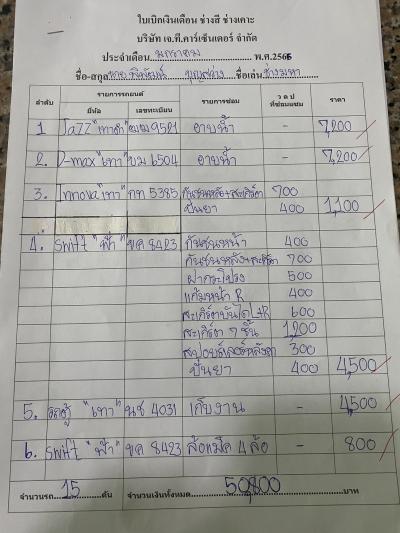 ใบเบิกเงินเดือน ช่างสี ช่างเคาะ
บริษัท เจ.ที.คาร์เซ็นเตอร์ จำกัด
ประจำเดือน มกราคม พ.ศ.2566
ชื่อ-สกุล ชื่อเล่น ช่างมหา
ลำดับ รายการรถยนต์ รายการซ่อม ว ด ป ที่ซ่อมแซม ราคา
ยี่ห้อ เลขทะเบียน
1 Jazz "เทาดำ" 9521 อาบน้ำ - 7,200
2. D-max "เทา" บม 6504 อาบน้ำ - 7,200
3. Innova "เทา" กท 5385 กันชนหลัง+สเกิร์ต 700
ปั่นยา 400 1,100
4. Swift "ฟ้า" ขค 8423 กันชนหน้า 400
กันชนหลัง+สเกิร์ต 700
ฝากระโปรง 500
แก้มหน้า R 400
สเกิร์ตบันได L+R 600
สเกิร์ต 7 ชิ้น 1,200
สปอยเลอร์หลัง 300
ปั่นยา 400 4,500
5. รถตู้ "เทา" นช 4031 เก็บงาน - 4,500
6. Swift "ฟ้า" ขค 8423 ล้อแม็ค 4 ล้อ - 800
จำนวนรถ 15 คัน จำนวนเงินทั้งหมด 50,800 บาท